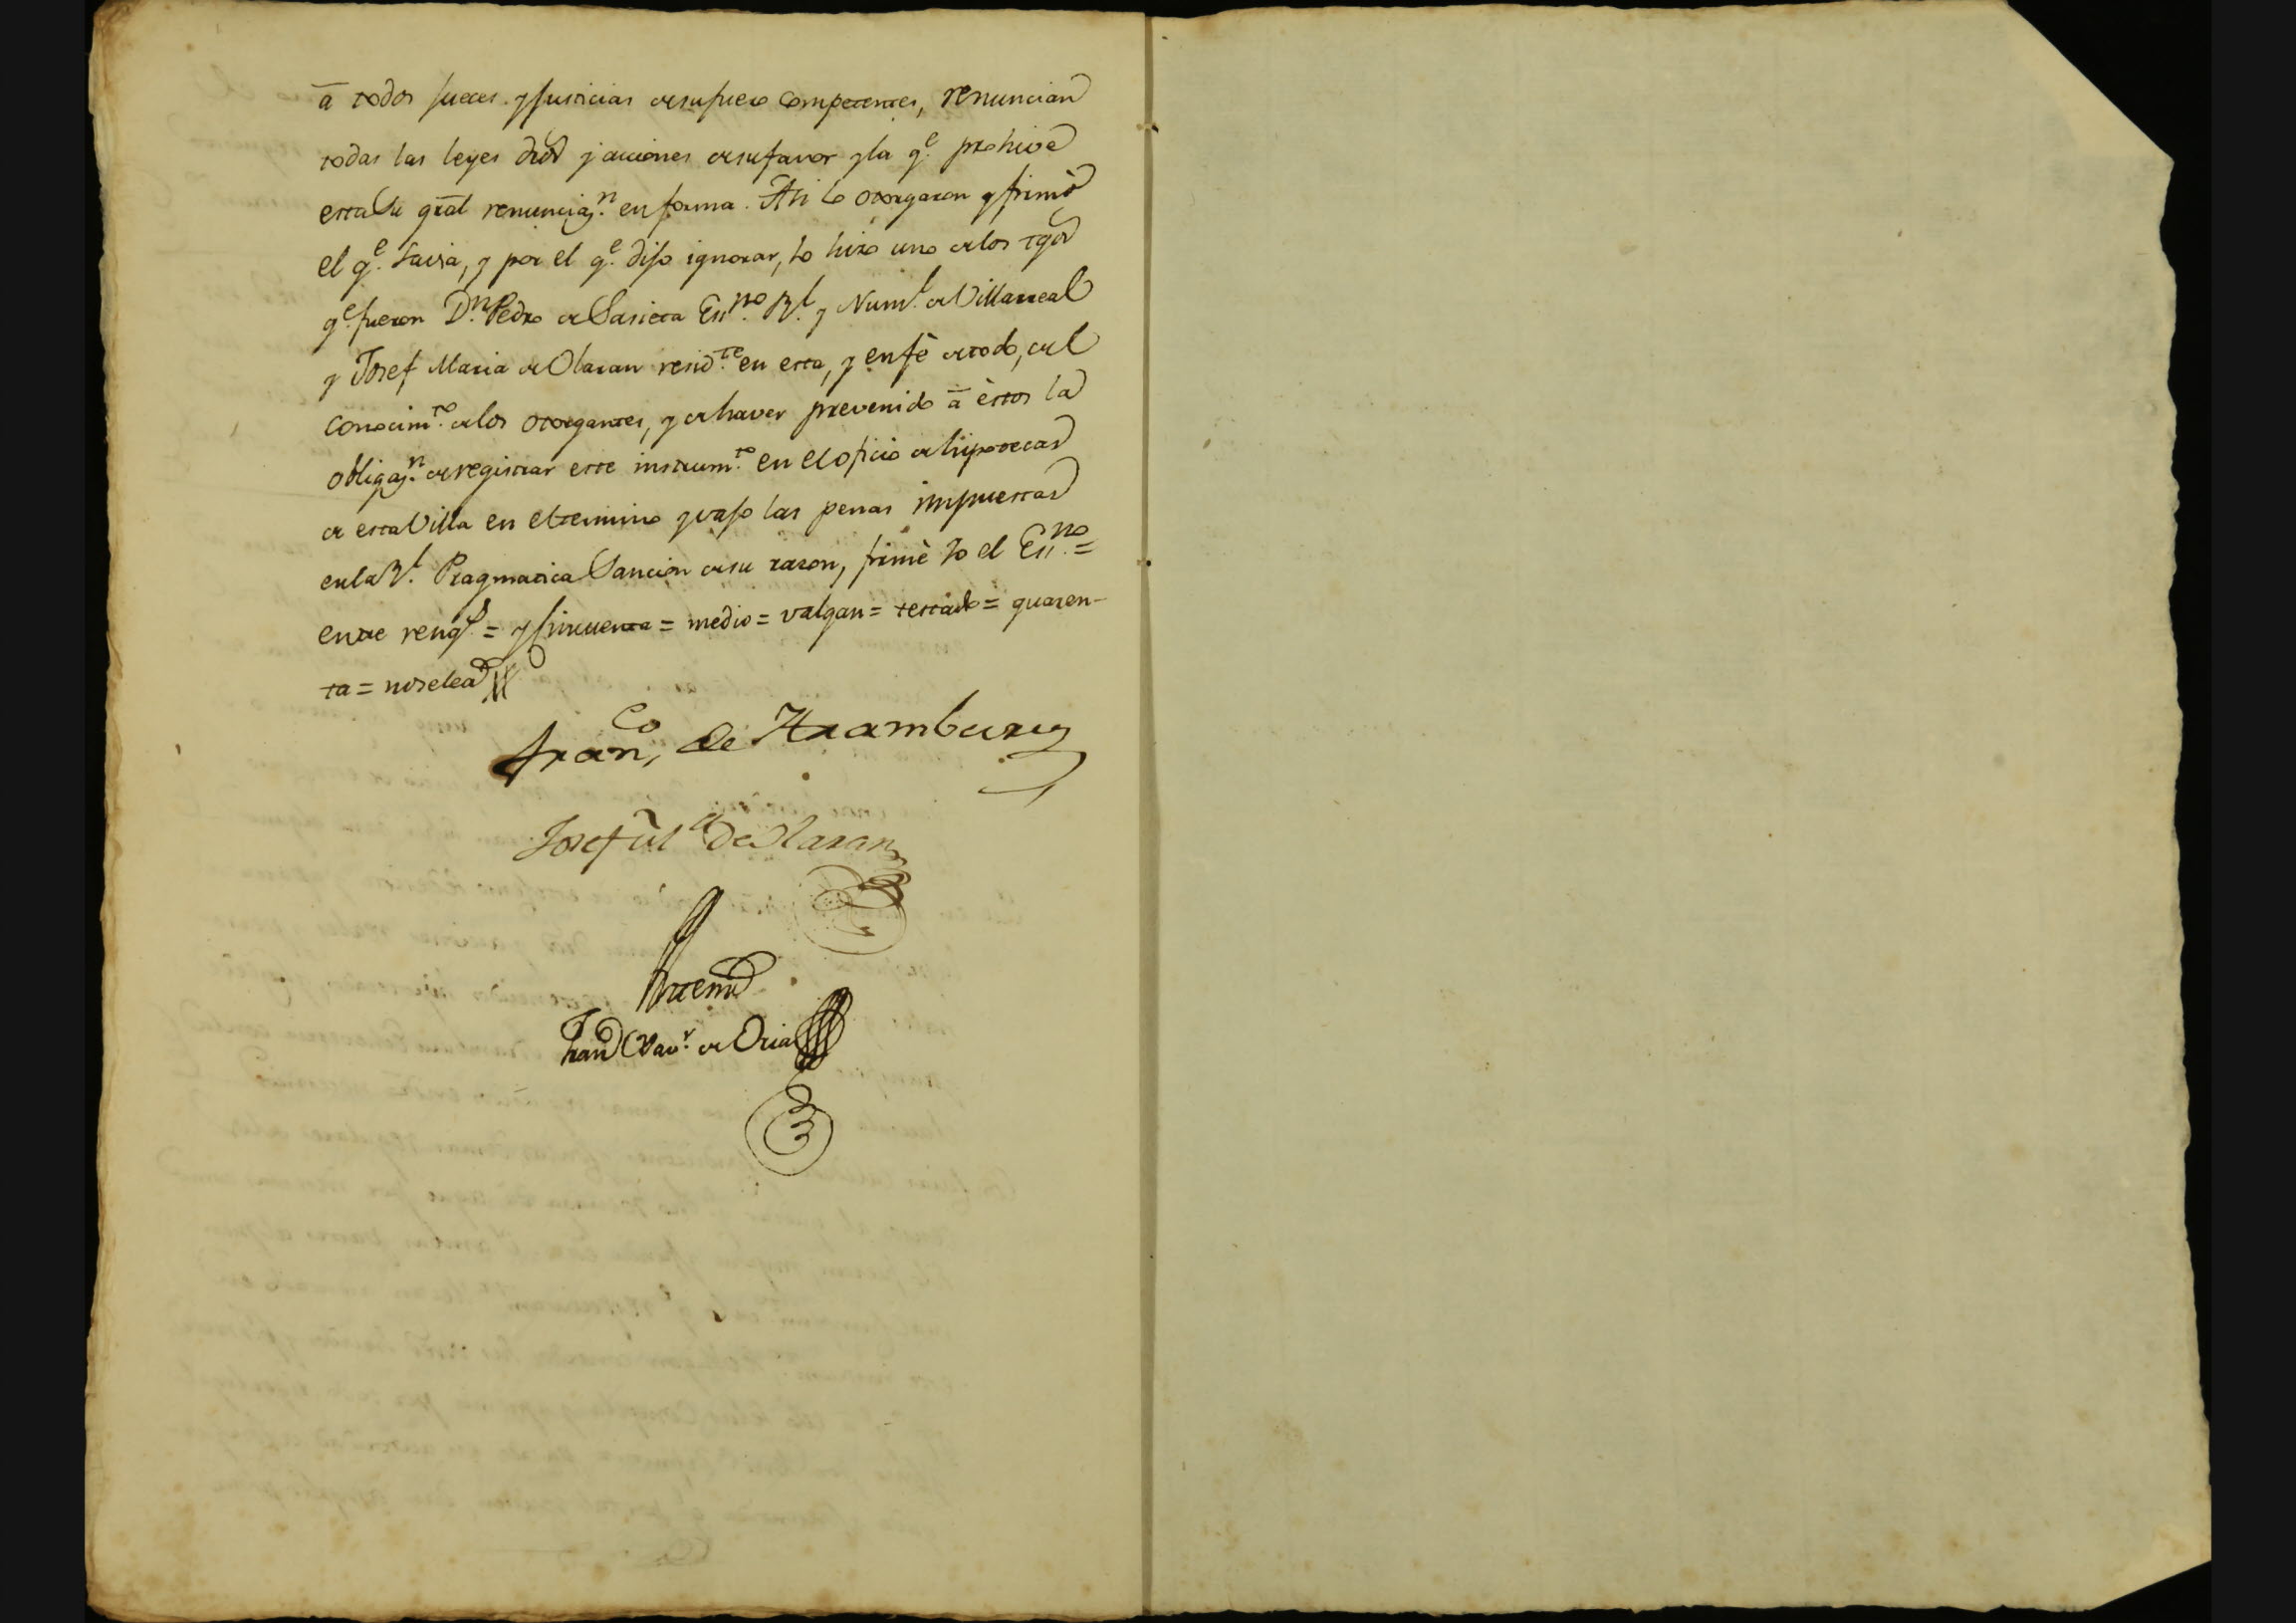 â todos Jueces y Justicias de su fuero Competentes, renuncian
todas las leyes dros y acciones de su favor y la q.e prohive
esta Su gral renunciaz.n en forma. Asi lo otorgaron y firmò
el q.e Savia, y por el q.e dijo ignorar, lo hizo uno de los tgos
q.e fueron D.n Pedro de Sasieta Ess.no R.l y Num.l de Villarreal
y Josef Maria de Olaran resid.te en esta, y en fè de todo, del
conocim.to de los otorgantes, y de haver prevenido â èstos la
obligaz.n de registrar este instrum.to en el oficio de hipotecas
de esta Villa en el termino y vajo las penas impuestas
en la R.l Pragmatica Sancion de su razon, firmè Yo el Ess.no =
entre reng.s = y Cincuenta = medio = valgan = testado = quaren-
ta = no se lea
Fran.co de Aramburu
Josef M.a de Olaran
Antemi
Fran Xav.r de Oria